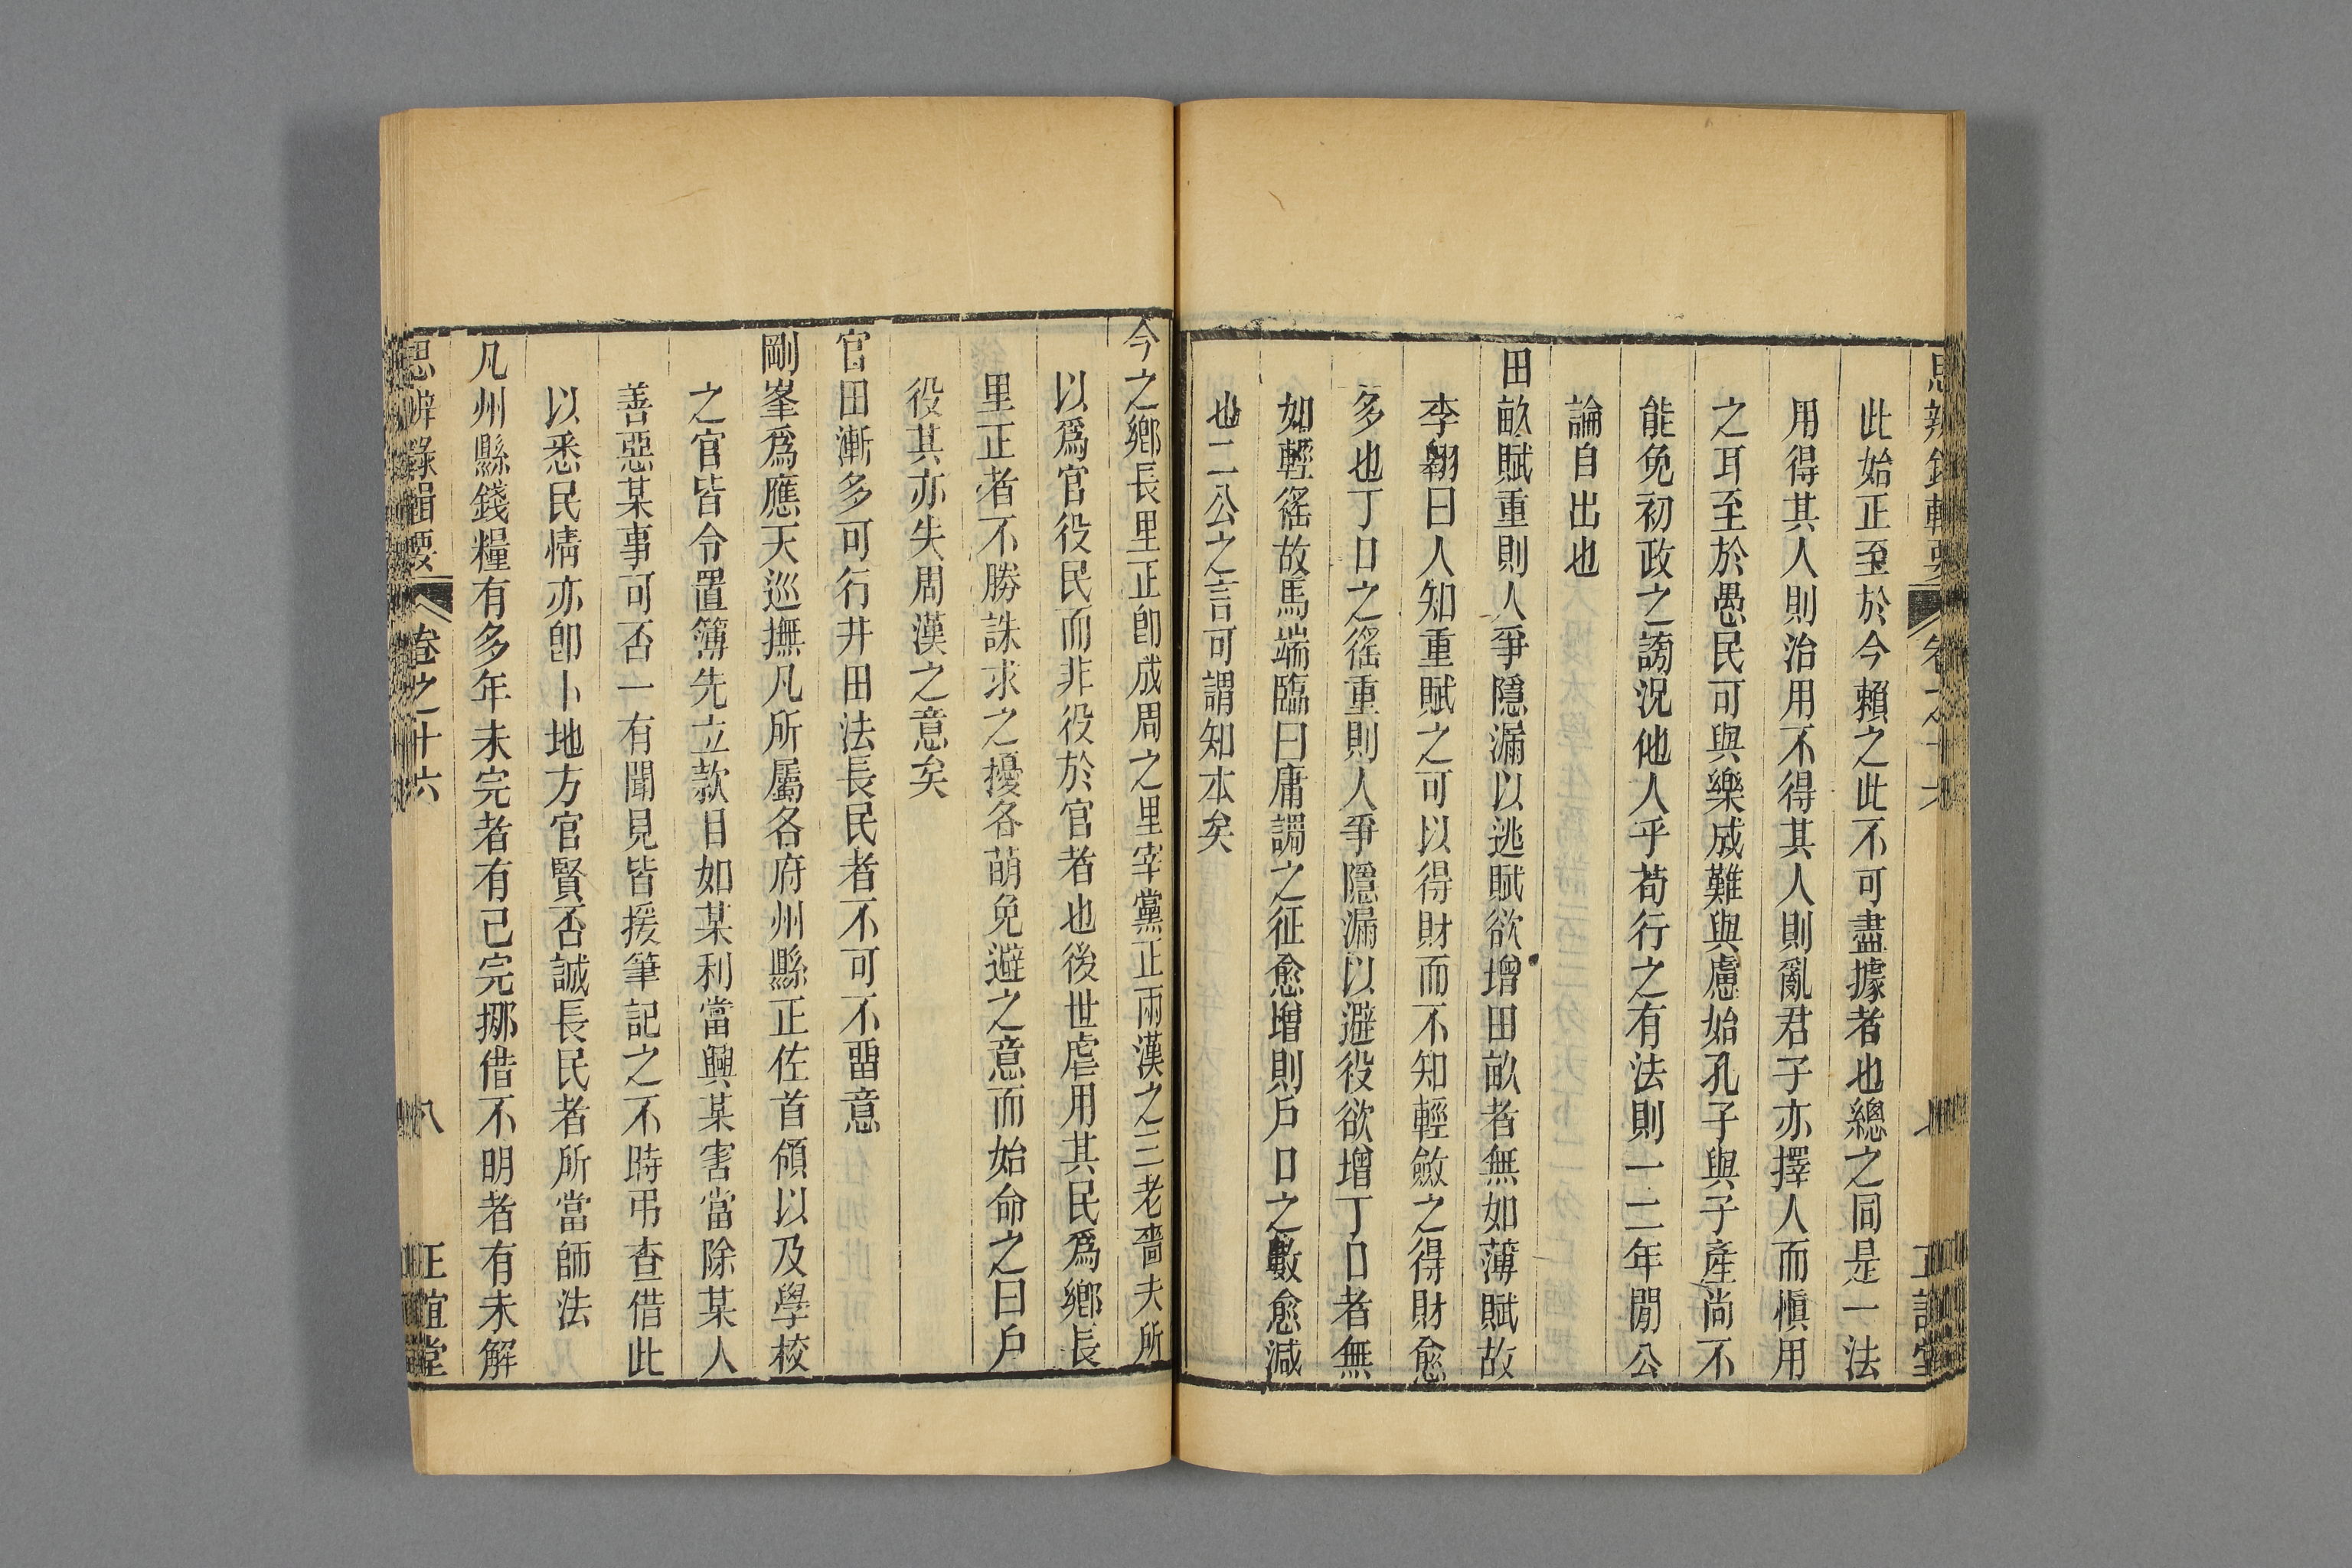 思辨錄輯要
卷之十六
正誼堂
此始正至於今賴之此不可盡據者也總之同是一法
用得其人則治用不得其人則亂君子亦擇人而愼用
之耳至於愚民可與樂成難與慮始孔子與子產尚不
能免初政之謗況他人乎苟行之有法則一二年閒公
論自出也
田畝賦重則人爭隱漏以逃賦欲增田畝者無如薄賦故
李翱曰人知重賦之可以得財而不知輕斂之得財愈
多也丁口之徭重則人爭隱漏以避役欲增丁口者無
如輕徭故馬端臨曰庸調之征愈增則戶口之數愈減
也二公之言可謂知本矣
今之鄉長里正卽成周之里宰黨正兩漢之三老嗇夫所
以爲官役民而非役於官者也後世虐用其民爲鄉長
里正者不勝誅求之擾各萌免避之意而始命之曰戶
役其亦失周漢之意矣
官田漸多可行井田法長民者不可不畱意
剛峯爲應天巡撫凡所屬各府州縣正佐首領以及學校
之官皆令置簿先立款目如某利當興某害當除某人
善惡某事可否一有聞見皆援筆記之不時弔查借此
以悉民情亦卽卜地方官賢否誠長民者所當師法
凡州縣錢糧有多年未完者有已完挪借不明者有未解
思辨錄輯要
卷之十六
八
正誼堂